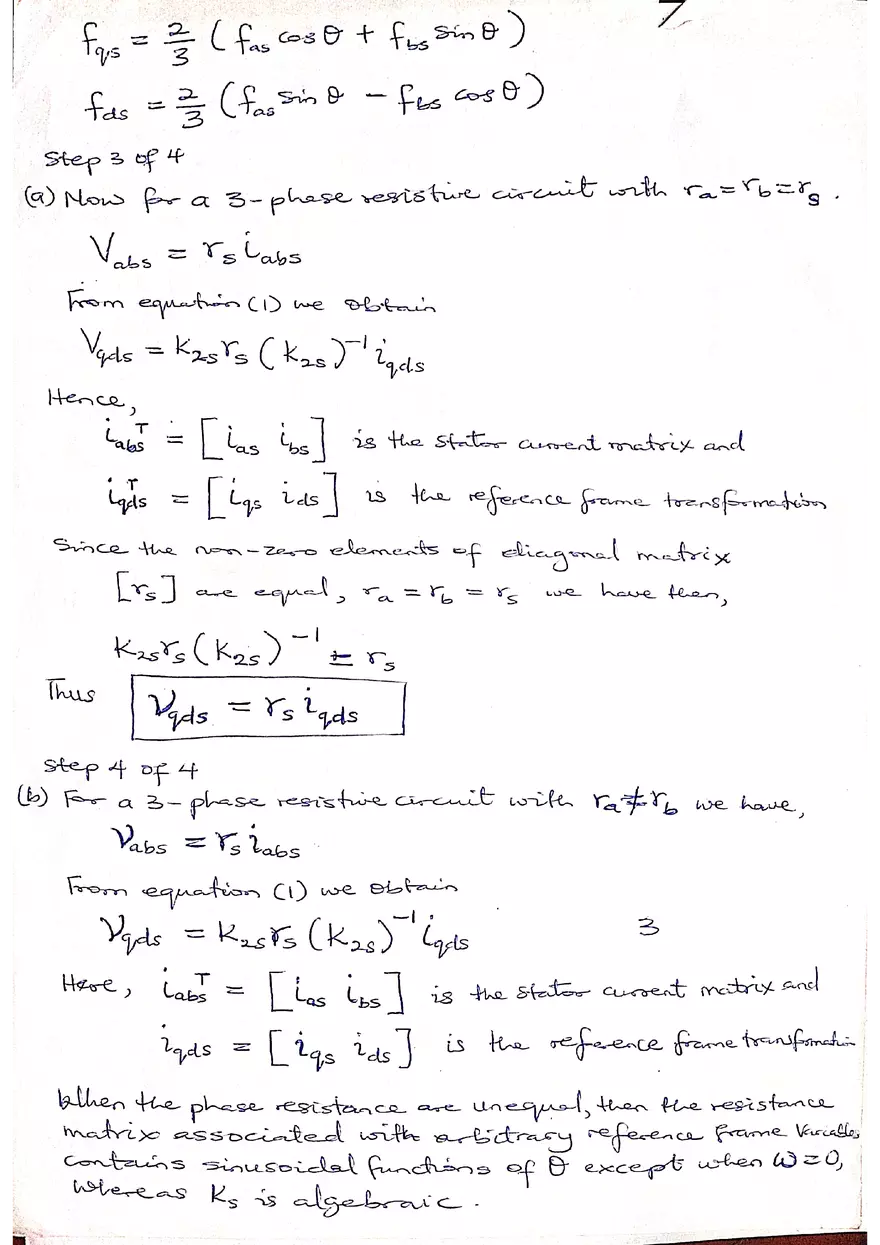 7
f_qs = 2/3 ( f_as cos θ + f_bs sin θ )
f_ds = 2/3 ( f_as sin θ - f_bs cos θ )
Step 3 of 4
(a) Now for a 3-phase resistive circuit with r_a = r_b = r_s .
V_abs = r_s i_abs
From equation (1) we obtain
V_qds = K_2s r_s (K_2s)^-1 i_qds
Hence,
i_abs^T = [ i_as i_bs ] is the stator current matrix and
i_qds^T = [ i_qs i_ds ] is the reference frame transformation
Since the non-zero elements of diagonal matrix
[r_s] are equal, r_a = r_b = r_s we have then,
K_2s r_s (K_2s)^-1 = r_s
Thus V_qds = r_s i_qds
Step 4 of 4
(b) For a 3-phase resistive circuit with r_a ≠ r_b we have,
V_abs = r_s i_abs
From equation (1) we obtain
V_qds = K_2s r_s (K_2s)^-1 i_qds 3
Here, i_abs^T = [ i_as i_bs ] is the stator current matrix and
i_qds = [ i_qs i_ds ] is the reference frame transformation
When the phase resistance are unequal, then the resistance
matrix associated with arbitrary reference frame Variables
contains sinusoidal functions of θ except when ω = 0,
whereas K_s is algebraic.